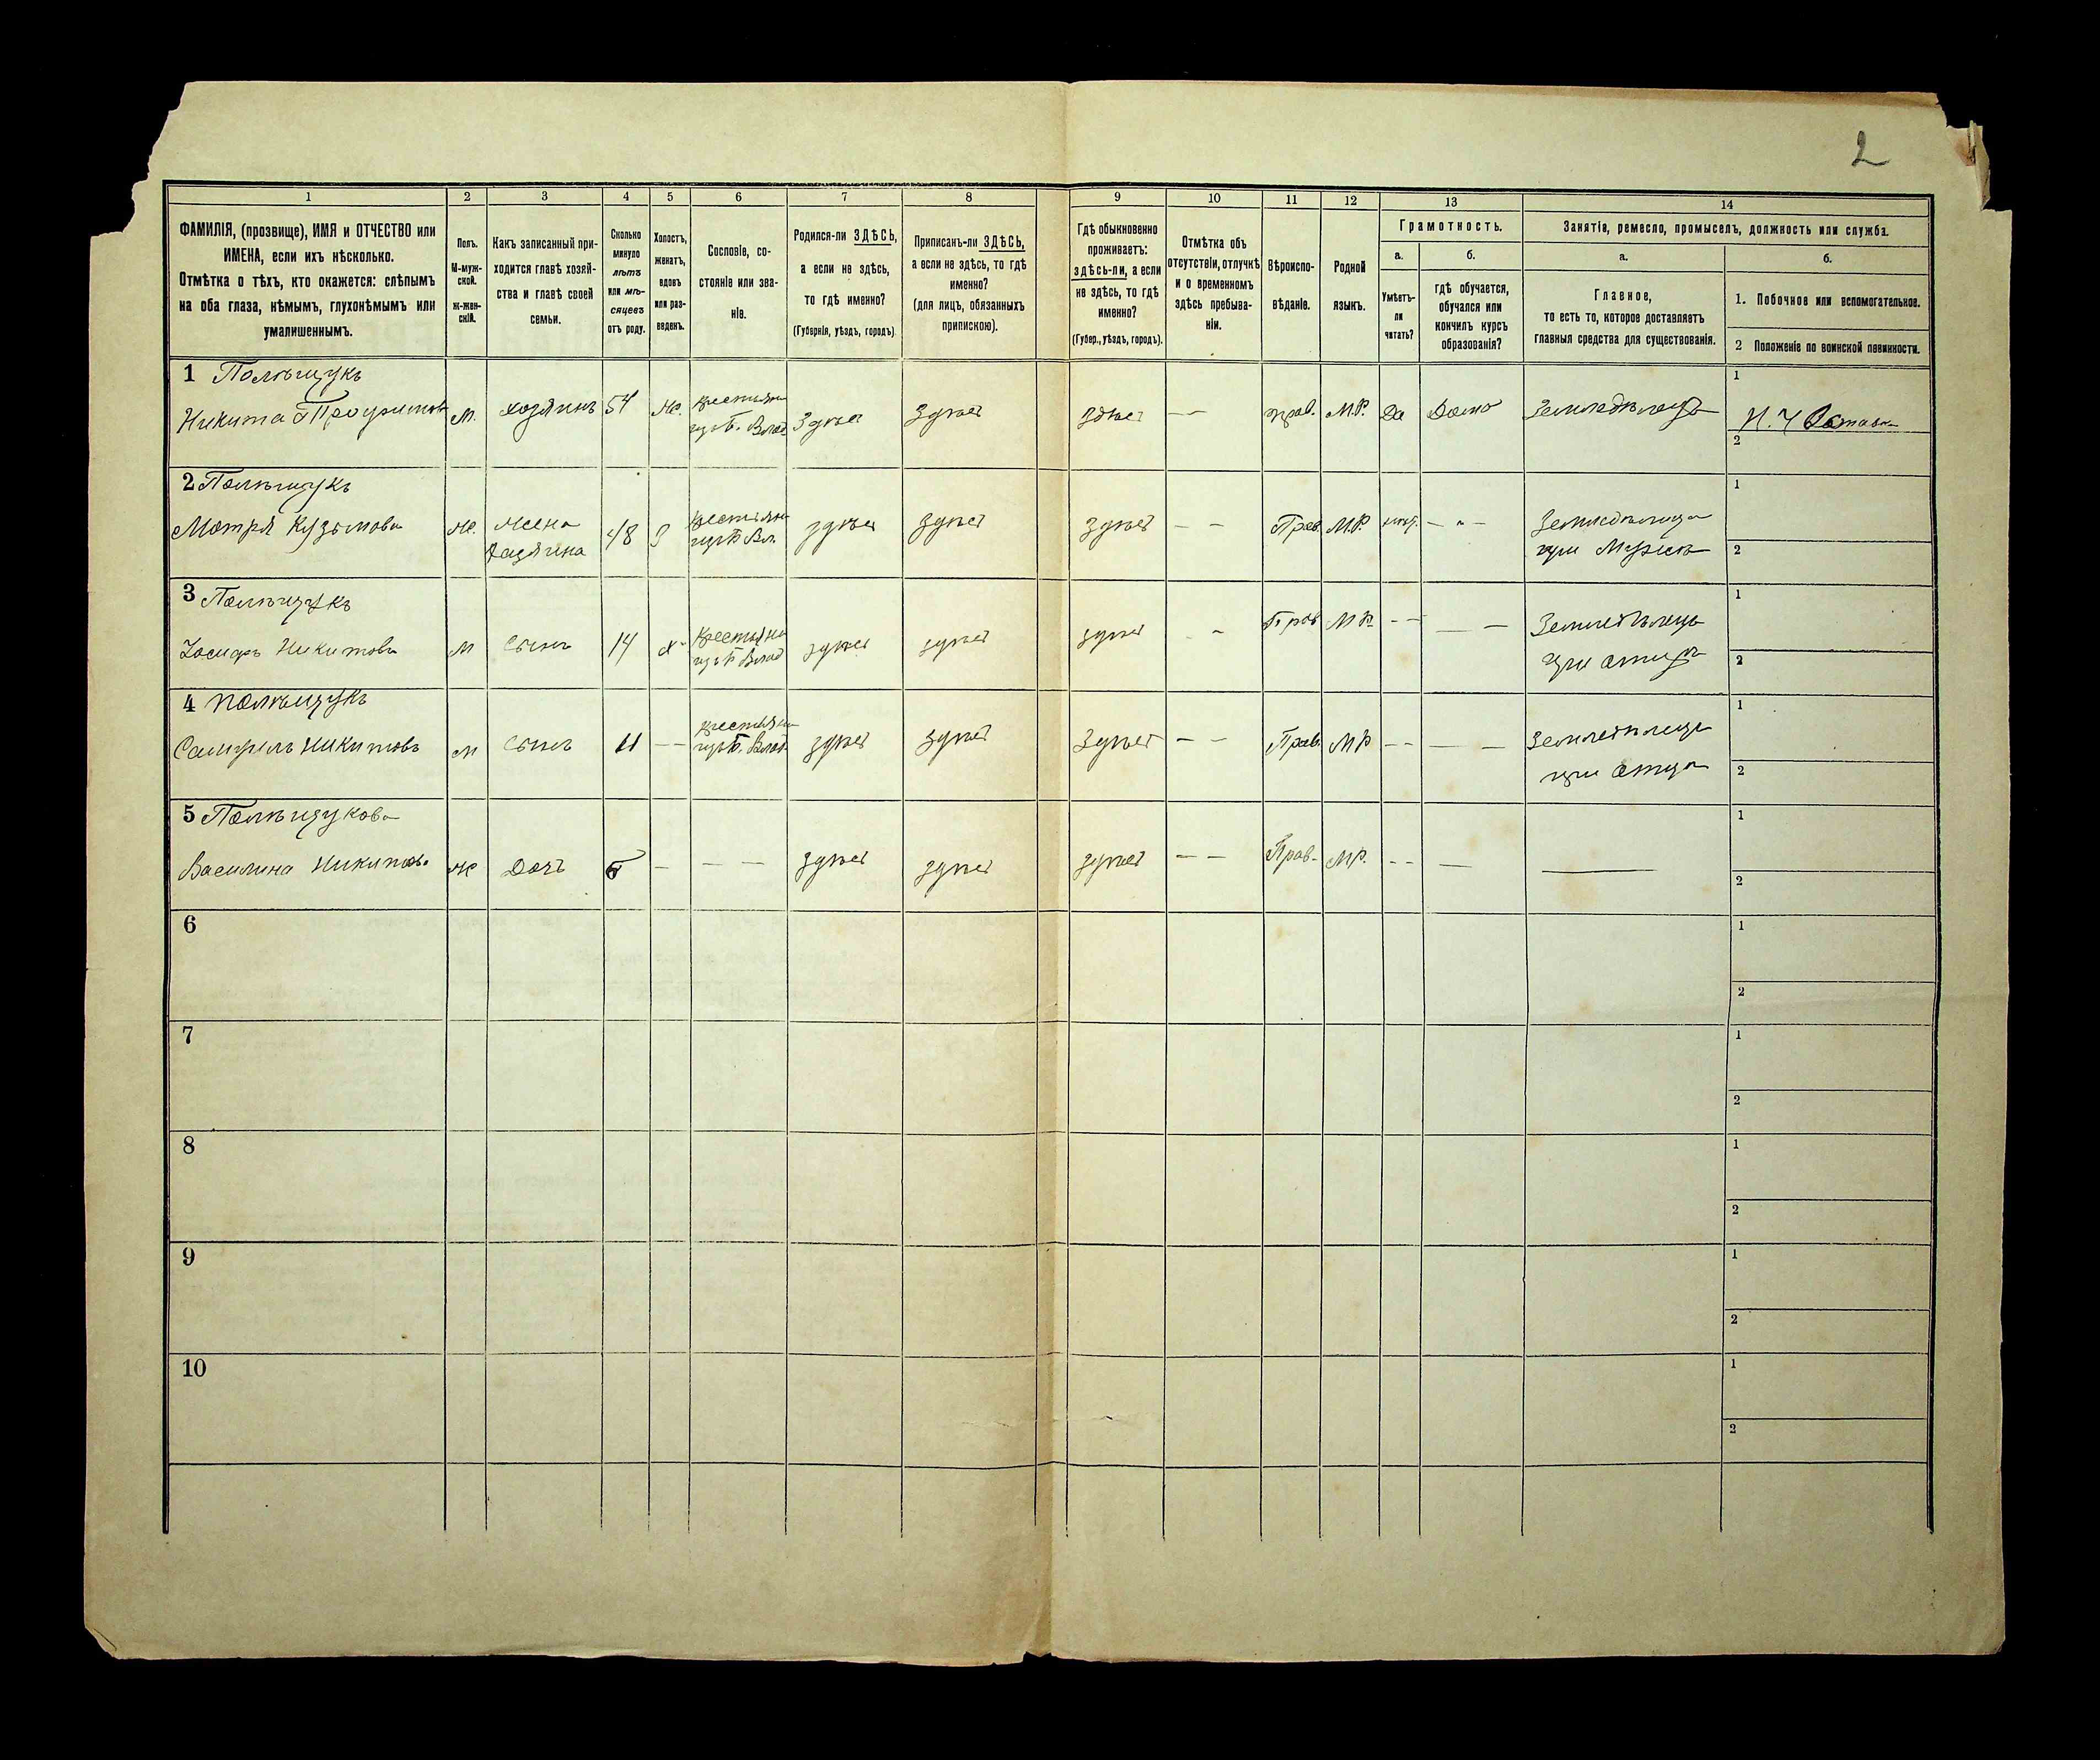 2
1 2 3 4 5 6 7 8 9 10 11 12 13 14
ФАМИЛІЯ, (прозвище), ИМЯ и ОТЧЕСТВО или
ИМЕНА, если ихъ нѣсколько.
Отмѣтка о тѣхъ, кто окажется: слѣпымъ
на оба глаза, нѣмымъ, глухонѣмымъ или
умалишеннымъ.
Полъ.
М-муж-
ской.
ж-жен-
скій.
Какъ записанный при-
ходится главѣ хозяй-
ства и главѣ своей
семьи.
Сколько
минуло
лѣтъ
или мѣ-
сяцевъ
отъ роду.
Холостъ,
женатъ,
вдовъ
или раз-
веденъ.
Сословіе, со-
стояніе или зва-
ніе.
Родился-ли ЗДѢСЬ,
а если не здѣсь,
то гдѣ именно?
(Губернія, уѣздъ, городъ)
Приписанъ-ли ЗДѢСЬ,
а если не здѣсь, то гдѣ
именно?
(для лицъ, обязанныхъ
припискою).
Гдѣ обыкновенно
проживаетъ:
здѣсь-ли, а если
не здѣсь, то гдѣ
именно?
(Губер., уѣздъ, городъ).
Отмѣтка объ
отсутствіи, отлучкѣ
и о временномъ
здѣсь пребыва-
ніи.
Вѣроиспо-
вѣданіе.
Родной
языкъ.
Грамотность.
а.
Умѣетъ-
ли
читать?
б.
гдѣ обучается,
обучался или
кончилъ курсъ
образованія?
Занятіе, ремесло, промыселъ, должность или служба.
а.
Главное,
то есть то, которое доставляетъ
главныя средства для существованія.
б.
1. Побочное или вспомогательное.
2 Положеніе по воинской повинности.
1 Полѣщукъ
Никита Трофимовъ М. хозяинъ 54 Ж. Крестьян. Здѣсь Здѣсь Здѣсь — — прав. М.Р. Да Дома Земледѣлецъ 1 2
2 Полѣщукъ
Мотря Кузьмова Ж. Жена
хозяина 48 З здѣсь здѣсь здѣсь — — Прав. М.Р. Земледѣлица
при Мужѣ 1 2
3 Полѣщукъ
Іосифъ Никитовъ М Сынъ 14 х здѣсь здѣсь здѣсь - Прав М Р - - — — Земледѣлецъ
при отцѣ 1 2
4 Полѣщукъ
Никитовъ М Сынъ 11 — — здѣсь здѣсь здѣсь — — Прав. М Р - - — — Земледѣлецъ
при отцѣ 1 2
5 Полѣщукова
Василина Никитова Ж Дочь — — — здѣсь здѣсь здѣсь — — Прав. М Р. - - — — 1 2
6 1 2
7 1 2
8 1 2
9 1 2
10 1 2